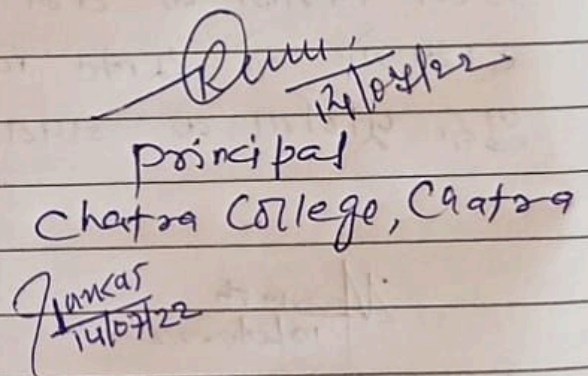 14/07/22
Principal
Chatra College, Chatra
14/07/22